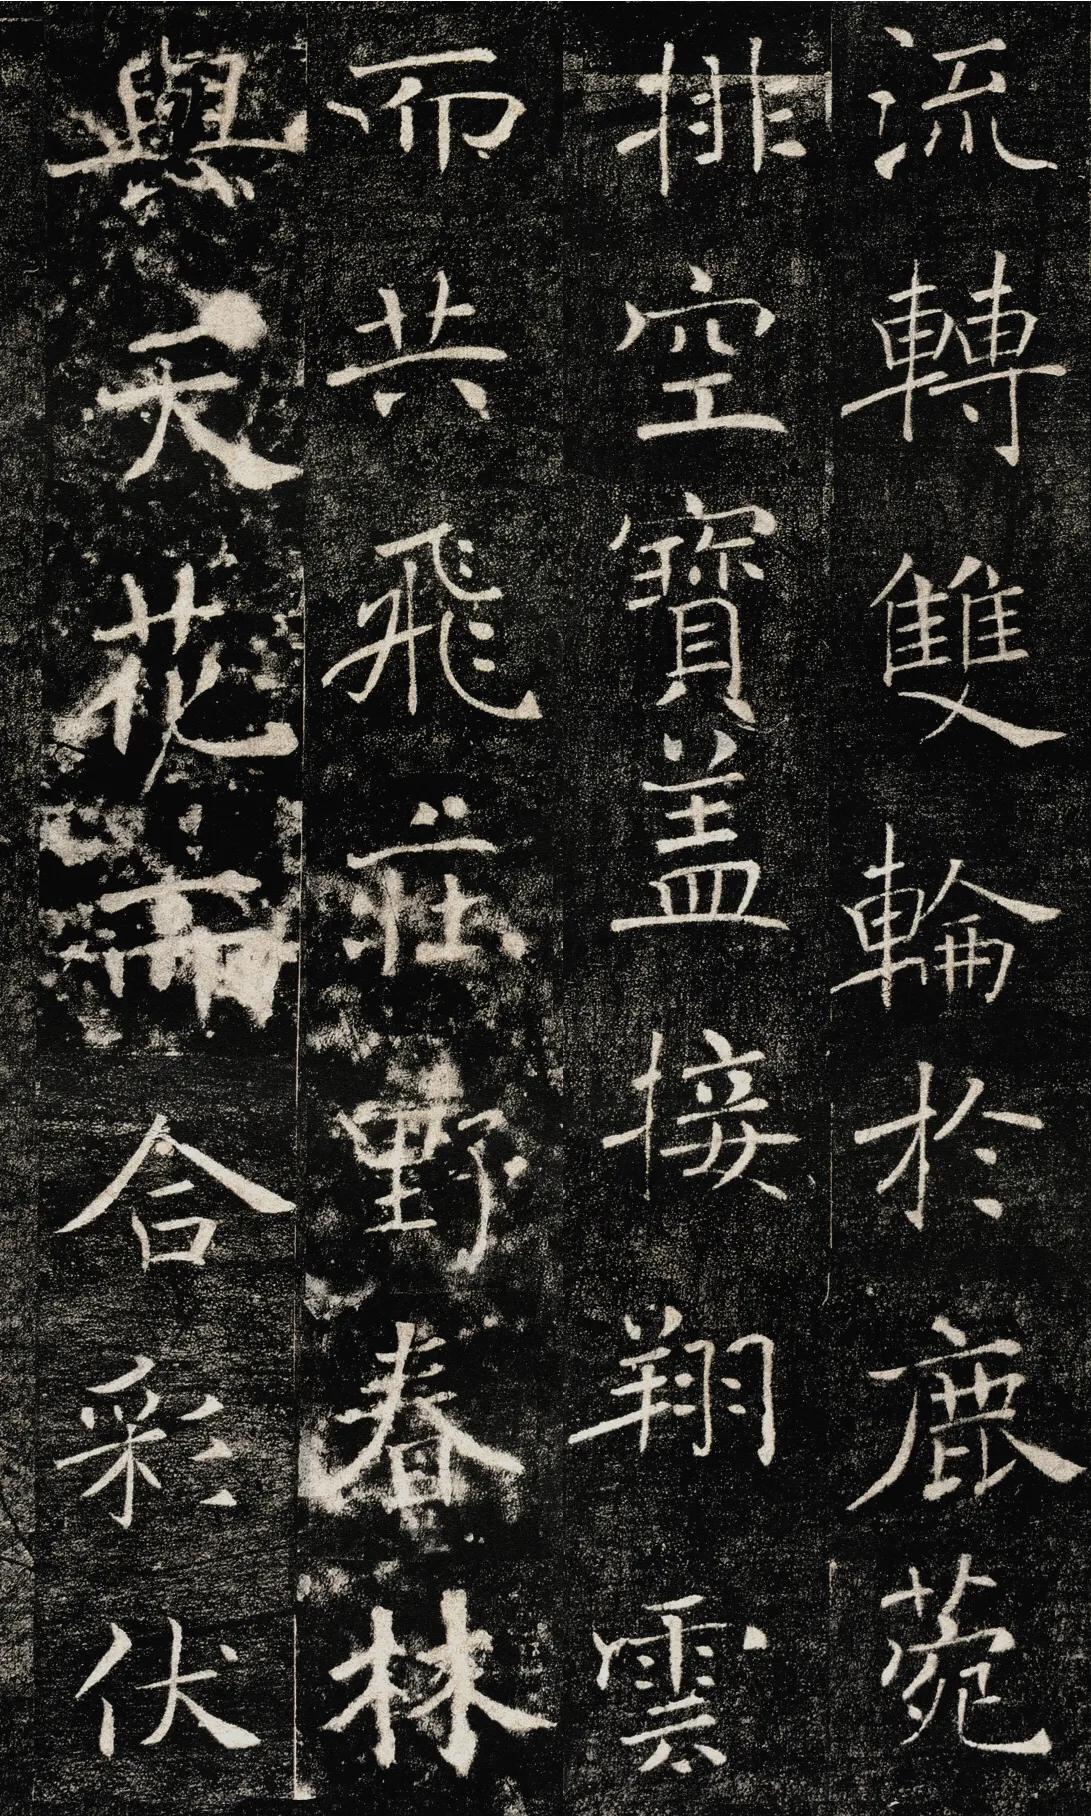 流轉雙輪於鹿菀
排空寶盖接翔雲
而共飛莊野春林
與天花而合彩伏